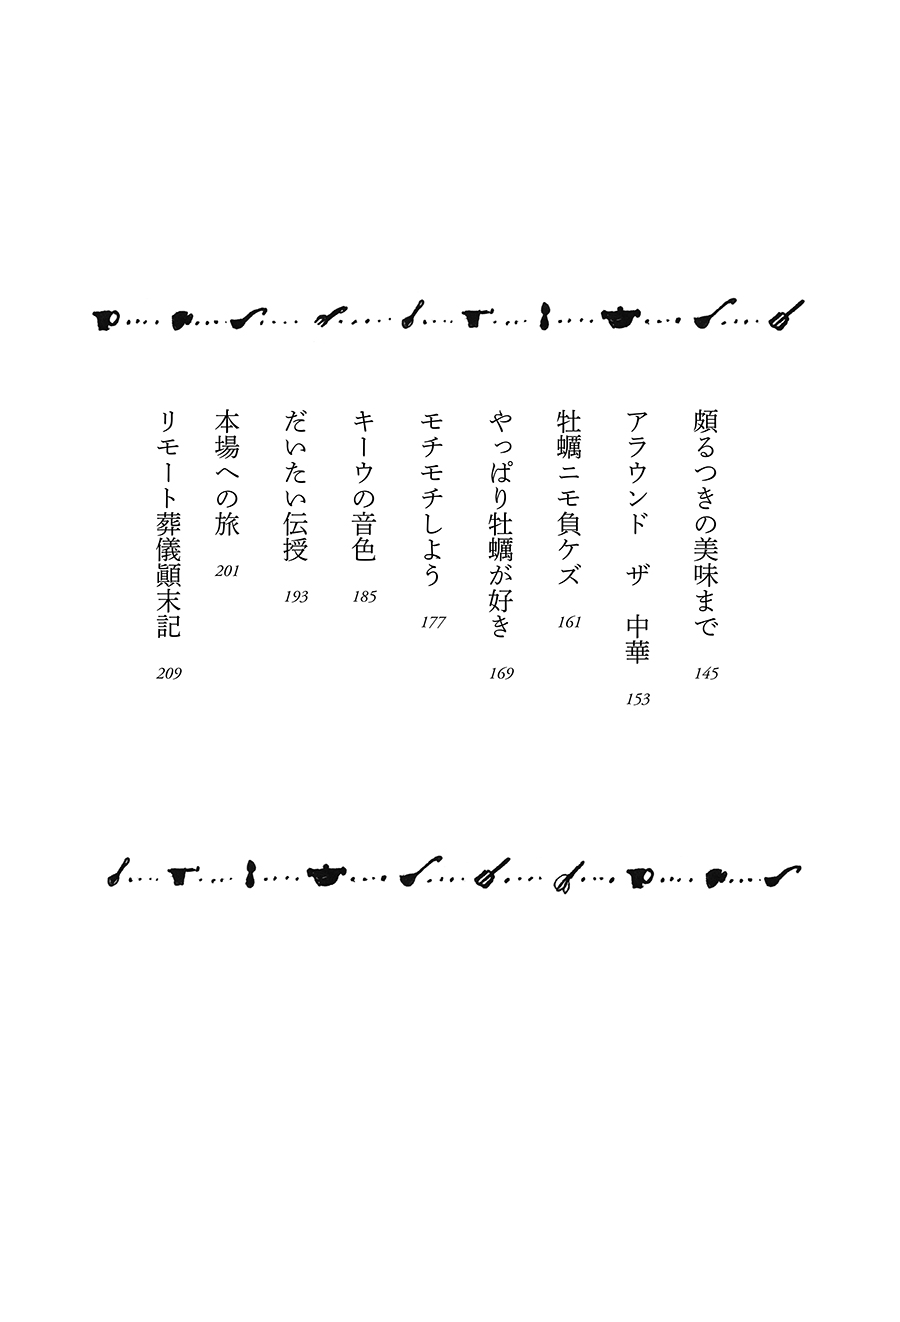 頗るつきの美味まで 145
アラウンド ザ 中華 153
牡蠣ニモ負ケズ 161
やっぱり牡蠣が好き 169
モチモチしよう 177
キーウの音色 185
だいたい伝授 193
本場への旅 201
リモート葬儀顚末記 209